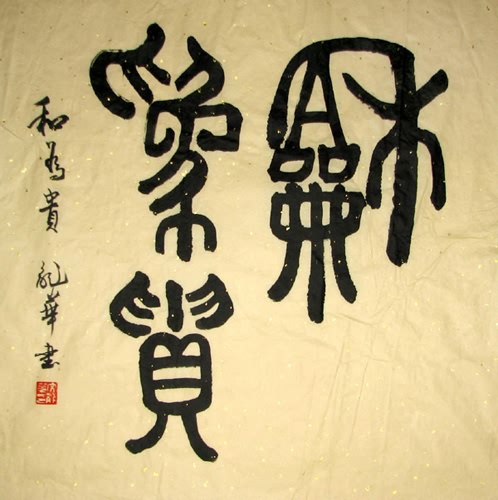 龢
為貴
和為貴 華書